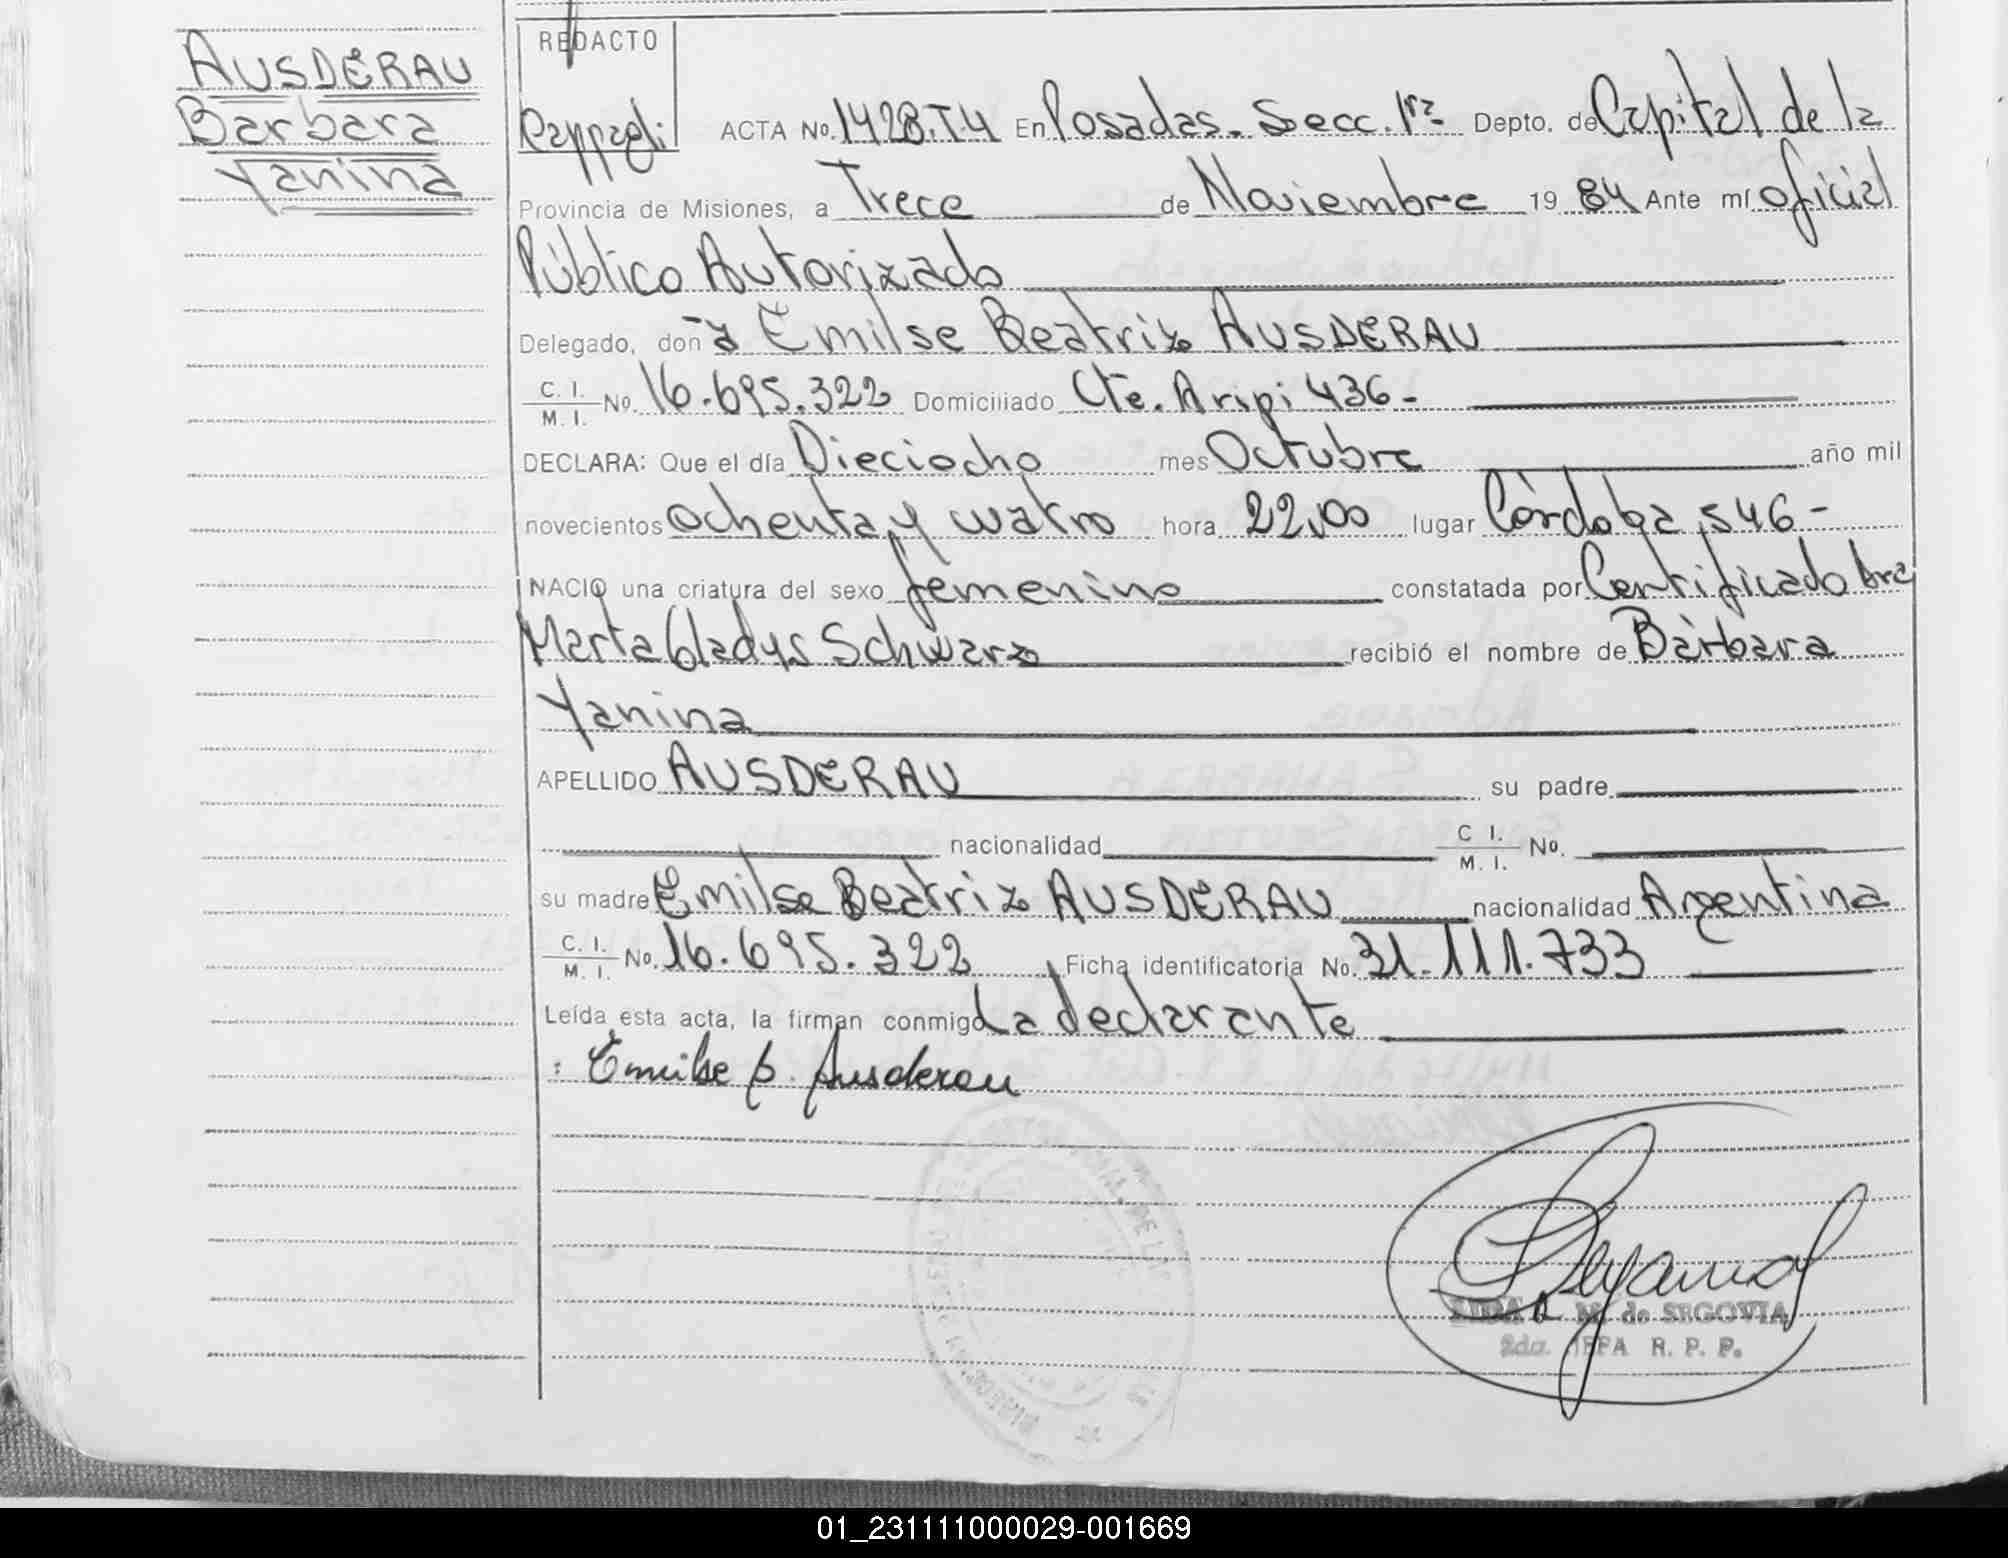 AUSDERAU
Barbara
Yanina
REDACTO
ACTA No. 1428.T.4 En Posadas. Secc. 1ra Depto. de Capital de la
Provincia de Misiones, a Trece de Noviembre 19 84 Ante mí oficial
Público Autorizado
Delegado, doña Emilse Beatriz AUSDERAU
C. I. / M. I. No. 16.695.322 Domiciliado Cte. Aripi 436-
DECLARA: Que el día Dieciocho mes Octubre año mil
novecientos ochenta y cuatro hora 22,00 lugar Córdoba 546-
NACIO una criatura del sexo femenino constatada por Certificado Dra
Marta Gladys Schwarz recibió el nombre de Bárbara
Yanina
APELLIDO AUSDERAU su padre
nacionalidad C I. / M. I. No.
su madre Emilse Beatriz AUSDERAU nacionalidad Argentina
C. I. / M. I. No. 16.695.322 Ficha identificatoria No. 31.111.733
Leída esta acta, la firman conmigo La declarante
: Emilse B. Ausderau
M. de SEGOVIA
2da. JEFA R. P. P.
01_231111000029-001669